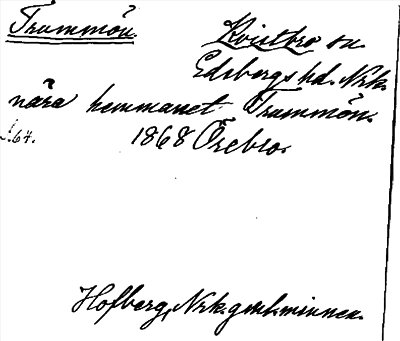 Trummön. Kvistbro sn
Edsbergs hd. Nrk.
nära hemmanet Trummön.
S.64. 1868 Örebro.
Hofberg, Nrk. gml. minnen.